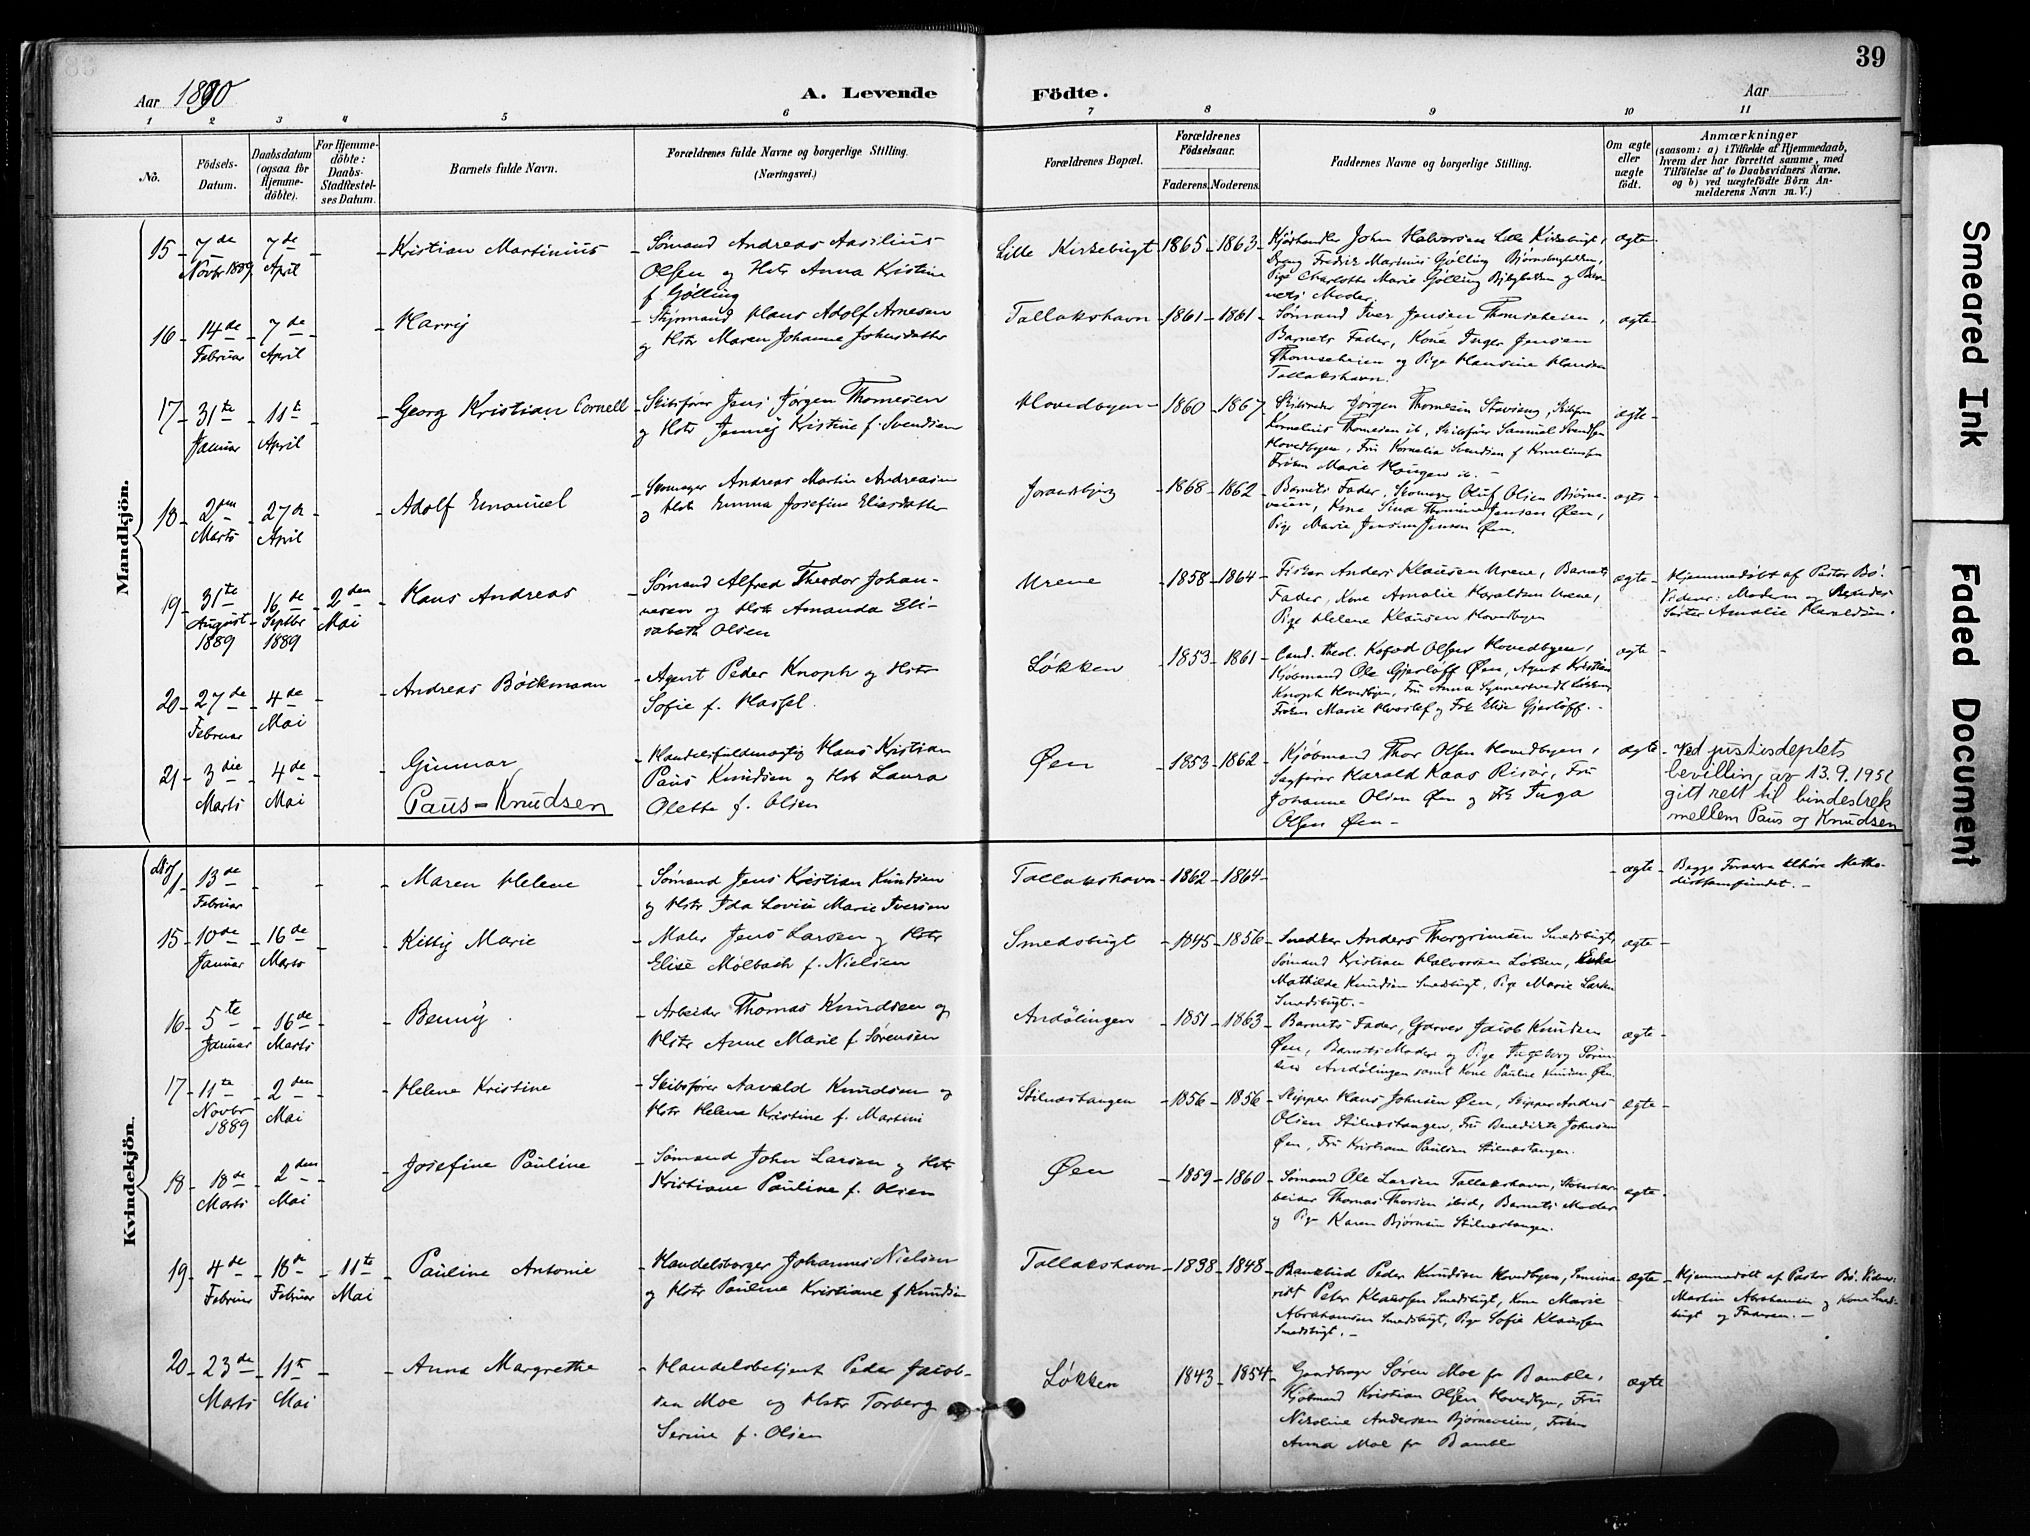 39
Aar 1890
A. Levende Födte.
Aar
1 2 3 4 5 6 7 8 9 10 11
No.
Födsels-Datum.
Daabsdatum (ogsaa for Hjemme-döbte).
For Hjemme-döbte: Daabs-Stadfæstel-ses Datum.
Barnets fulde Navn.
Forældrenes fulde Navne og borgerlige Stilling. (Næringsvei.)
Forældrenes Bopæl.
Forældrenes Födselsaar.
Faderens. Moderens.
Faddernes Navne og borgerlige Stilling.
Om ægte eller uægte födt.
Anmærkninger
(saasom: a) i Tilfælde af Hjemmedaab,
hvem der har forrettet samme, med
Tilföielse af to Daabsvidners Navne.
og b) ved uægtefödte Börn An-
melderens Navn m. V.)
Mandkjön.
15 7de Novbr 1889 7de April Kristian Martinius
Sømand Andreas Aasilius
Olsen og Hstr Anna Kristine
f. Gølling
Lille Kirkebugt 1865 1863
John Halvorsen Lille Kirkebugt,
Dreng Fredrik Martinus Gølling
Pige Charlotte Marie Gølling og Bar-
nets Moder.
ægte
16 14de Februar 7de April Harry
Styrmand Hans Adolf Arnesen
og Hstr Maren Johanne Johnsdatter
Tallakshavn 1861 1861
Sømand Iver Jensen Thomseheien,
Barnets Fader, Kone Inger Jensen
Thomseheien og Pige Hansine Hansen
Tallakshavn.
ægte
17 31te Januar 11te April Georg Kristian Cornell
Skibsfører Jens Jørgen Thomesen
og Hstr Jenny Kristine f. Svendsen
Hovedbyen 1860 1867
Skibsreder Jørgen Thomesen
Kornelius Thomesen ib, Skibsfører Samuel Svendsen
Hovedbyen, Fru Kornelia Svendsen f. Korneliussen
Frøken Marie Haugen ib.
ægte
18 2den Marts 27de April Adolf Emanuel
Skomager Andreas Martin Andreasen
og Hstr Emma Josefine Eliasdatter
1868 1862
Barnets Fader, Skomager Oluf Olsen Bjørne-
veien, Kone Sina Jensen Øen,
Pige Marie Jensen Øen.
ægte
19 31te August 1889 16de Septbr 1889 2den Mai Hans Andreas
Sømand Alfred Theodor Johan-
nesen og Hstr Amanda Eli-
sabeth Olsen
Urene 1858 1864
Fisker Anders Klausen Urene, Barnets
Fader, Kone Amalie Haraldsen Urene,
Pige Helene Klausen Hovedbyen
ægte
Hjemmedøbt af Pastor Bø.
Vidner: Moderen og
Søster Amalie Haraldsen.
20 27de Februar 4de Mai Andreas Böckmann
Agent Peder Knoph og Hstr
Sofie f. Hassel.
Løkken 1853 1861
Cand. theol. Kofod Olsen Hovedbyen,
Kjøbmand Ole Gjerløff Øen, Agent Kristian
Knoph Hovedbyen, Fru Anna Løkken
Frøken Marie og Frk Elise Gjerløff.
ægte
21 3die Marts 4de Mai Gunnar
Paus=Knudsen
Handelsfuldmægtig Hans Kristian
Paus Knudsen og Hstr Laura
Olette f. Olsen
Øen 1853 1862
Kjøbmand Thor Olsen Hovedbyen,
Sagfører Harald Kaas Risør, Fru
Johanne Olsen Øen og Frk Inga
Olsen Øen
ægte
Ved justisdeptets
bevilling av 13.9.1951
gitt rett til bindestrek
mellem Paus og Knudsen
Kvindekjön.
1 13de Februar Maren Helene
Sømand Jens Kristian Knudsen
og Hstr Ida Lovise Marie Iversen
Tallakshavn 1862 1864
ægte
Begge Forældre tilhøre Metho-
distsamfundet.
15 10de Januar 16de Marts Kitty Marie
Maler Jens Larsen og Hstr
Elise Mølbach f. Nielsen
Smedsbugt 1845 1856
Snedker Anders Thorgrimsen Smedsbugt,
Sømand Kristian Halvorsen Løkken,
Mathilde Knudsen Smedsbugt, Pige Marie Larsen
Smedsbugt.
ægte
16 5te Januar 16de Marts Benny
Arbeider Thomas Knudsen og
Hstr Anne Marie f. Sørensen
Andølingen 1851 1863
Barnets Fader, Garver Jacob Knudsen
Øen, Barnets Moder og Pige Ingeborg Søren-
sen Andølingen samt Kone Pauline Knudsen Øen.
ægte
17 11te Novbr 1889 2den Mai Helene Kristine
Skibsfører Aavald Knudsen og
Hstr Helene Kristine f. Martini
Stilnæstangen 1856 1856
Skipper Hans Johnsen Øen, Skipper Anders
Olsen Stilnæstangen, Fru Benedikte Johnsen
Øen, Fru Kristiane Paulsen Stilnæstangen.
ægte
18 18de Marts 2den Mai Josefine Pauline
Sømand John Larsen og Hstr
Kristiane Pauline f. Olsen
Øen 1859 1860
Sømand Ole Larsen Tallakshavn,
Thomas Thorsen ibid, Barnets Moder
og Pige Karen Bjørnsen Stilnæstangen.
ægte
19 4de Februar 18de Februar 11te Mai Pauline Antonie
Handelsborger Johannes Nielsen
og Hstr Pauline Kristiane f Knudsen
Tallakshavn 1838 1848
Bankbud Peder Knudsen Hovedbyen, Semina-
rist Peter Klaussen Smedsbugt, Kone Marie
Abrahamsen Smedsbugt, Pige Sofie Klaussen
Smedsbugt.
ægte
Hjemmedøbt af Pastor Bø. Vidner:
Martin Abrahamsen og Kone Smeds-
bugt og Faderen.
20 23de Marts 11te Mai Anna Margrethe
Handelsbetjent Peder Jacob-
sen Moe og Hstr Torberg
Serine f. Olsen
Løkken 1843 1854
Gaardbruger Søren Moe fr Bamble,
Kjøbmand Kristian Olsen Hovedbyen, Fru
Nicoline Andersen Bjørneveien, Frøken
Anna Moe fr Bamble
ægte
Smeared Ink
Faded Document